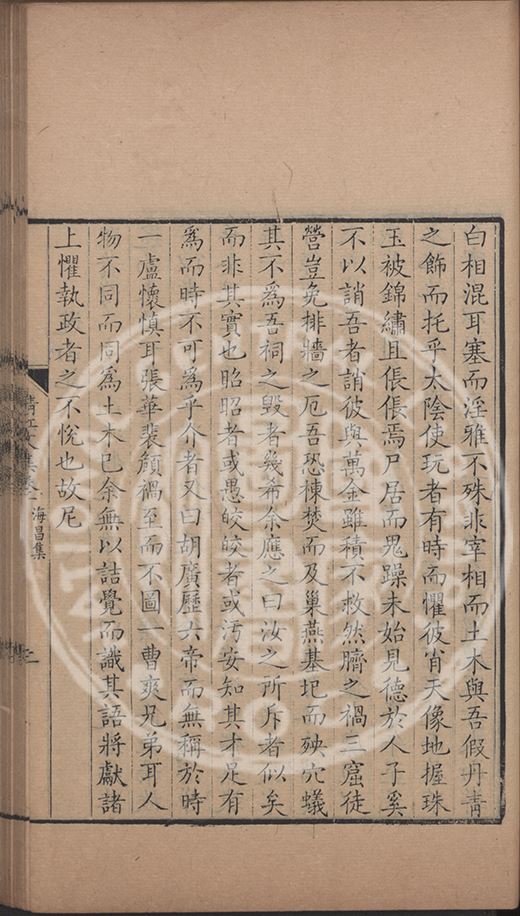 白相混耳塞而淫雅不殊非宰相而土木與吾假丹青
之飾而托乎太陰使玩者有時而懼彼肖天像地握珠
玉被錦繡且倀倀焉尸居而鬼躁未始見德於人子奚
不以誚吾者誚彼與萬金雖積不救然臍之禍三窟徒
營豈免排牆之厄吾恐棟焚而及巢燕基圯而殃穴蟻
其不為吾祠之毀者幾希余應之曰汝之所斥者似矣
而非其實也昭昭者或愚皎皎者或汚安知其才足有
爲而時不可為乎介者又曰胡廣歷六帝而無稱於時
一盧懷慎耳張華裴頠禍至而不圖一曹爽兄弟耳人
物不同而同為土木巳余無以詰覺而識其語將獻諸
上懼執政者之不悅也故尼
清江文集卷一 海昌集